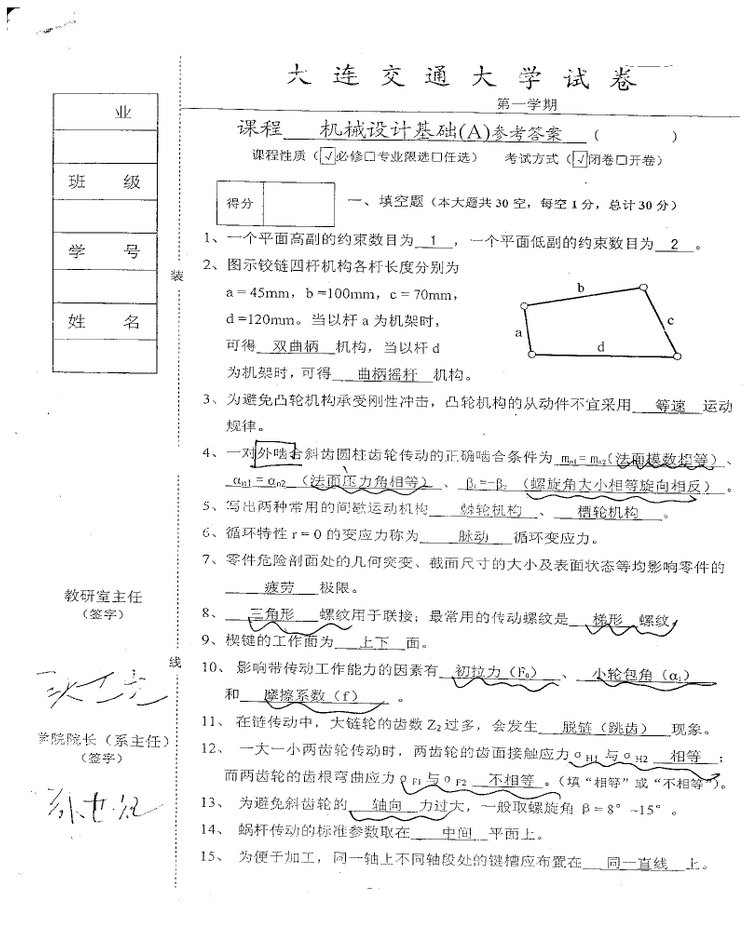 大连交通大学试卷
第一学期
课程 机械设计基础(A)参考答案 ( )
课程性质(√必修□专业限选□任选) 考试方式(√闭卷□开卷)
业
班 级
学 号
姓 名
装
得分
一、填空题(本大题共30空,每空1分,总计30分)
1、一个平面高副的约束数目为 1 ,一个平面低副的约束数目为 2 。
2、图示铰链四杆机构各杆长度分别为
a = 45mm, b =100mm, c = 70mm,
d =120mm。当以杆 a 为机架时,
可得 双曲柄 机构,当以杆 d
为机架时,可得 曲柄摇杆 机构。
b
a
c
d
3、为避免凸轮机构承受刚性冲击,凸轮机构的从动件不宜采用 等速 运动
规律。
4、一对外啮合斜齿圆柱齿轮传动的正确啮合条件为 mn1= mn2(法面模数相等)、
αn1 = αn2 (法面压力角相等) 、 β1 =-β2 (螺旋角大小相等旋向相反) 。
5、写出两种常用的间歇运动机构 棘轮机构 、 槽轮机构 。
6、循环特性 r = 0 的变应力称为 脉动 循环变应力。
7、零件危险剖面处的几何突变、截面尺寸的大小及表面状态等均影响零件的
疲劳 极限。
8、 三角形 螺纹用于联接;最常用的传动螺纹是 梯形 螺纹
9、楔键的工作面为 上下 面。
10、影响带传动工作能力的因素有 初拉力(F0) 、 小轮包角(α1)
和 摩擦系数(f) 。
11、在链传动中,大链轮的齿数 Z2 过多,会发生 脱链(跳齿) 现象。
12、一大一小两齿轮传动时,两齿轮的齿面接触应力σH1 与σH2 相等 ;
而两齿轮的齿根弯曲应力σF1 与σF2 不相等 。(填“相等”或“不相等”)。
13、为避免斜齿轮的 轴向 力过大,一般取螺旋角 β = 8° ~15° 。
14、蜗杆传动的标准参数取在 中间 平面上。
15、为便于加工,同一轴上不同轴段处的键槽应布置在 同一直线 上。
教研室主任
(签字)
线
学院院长(系主任)
(签字)